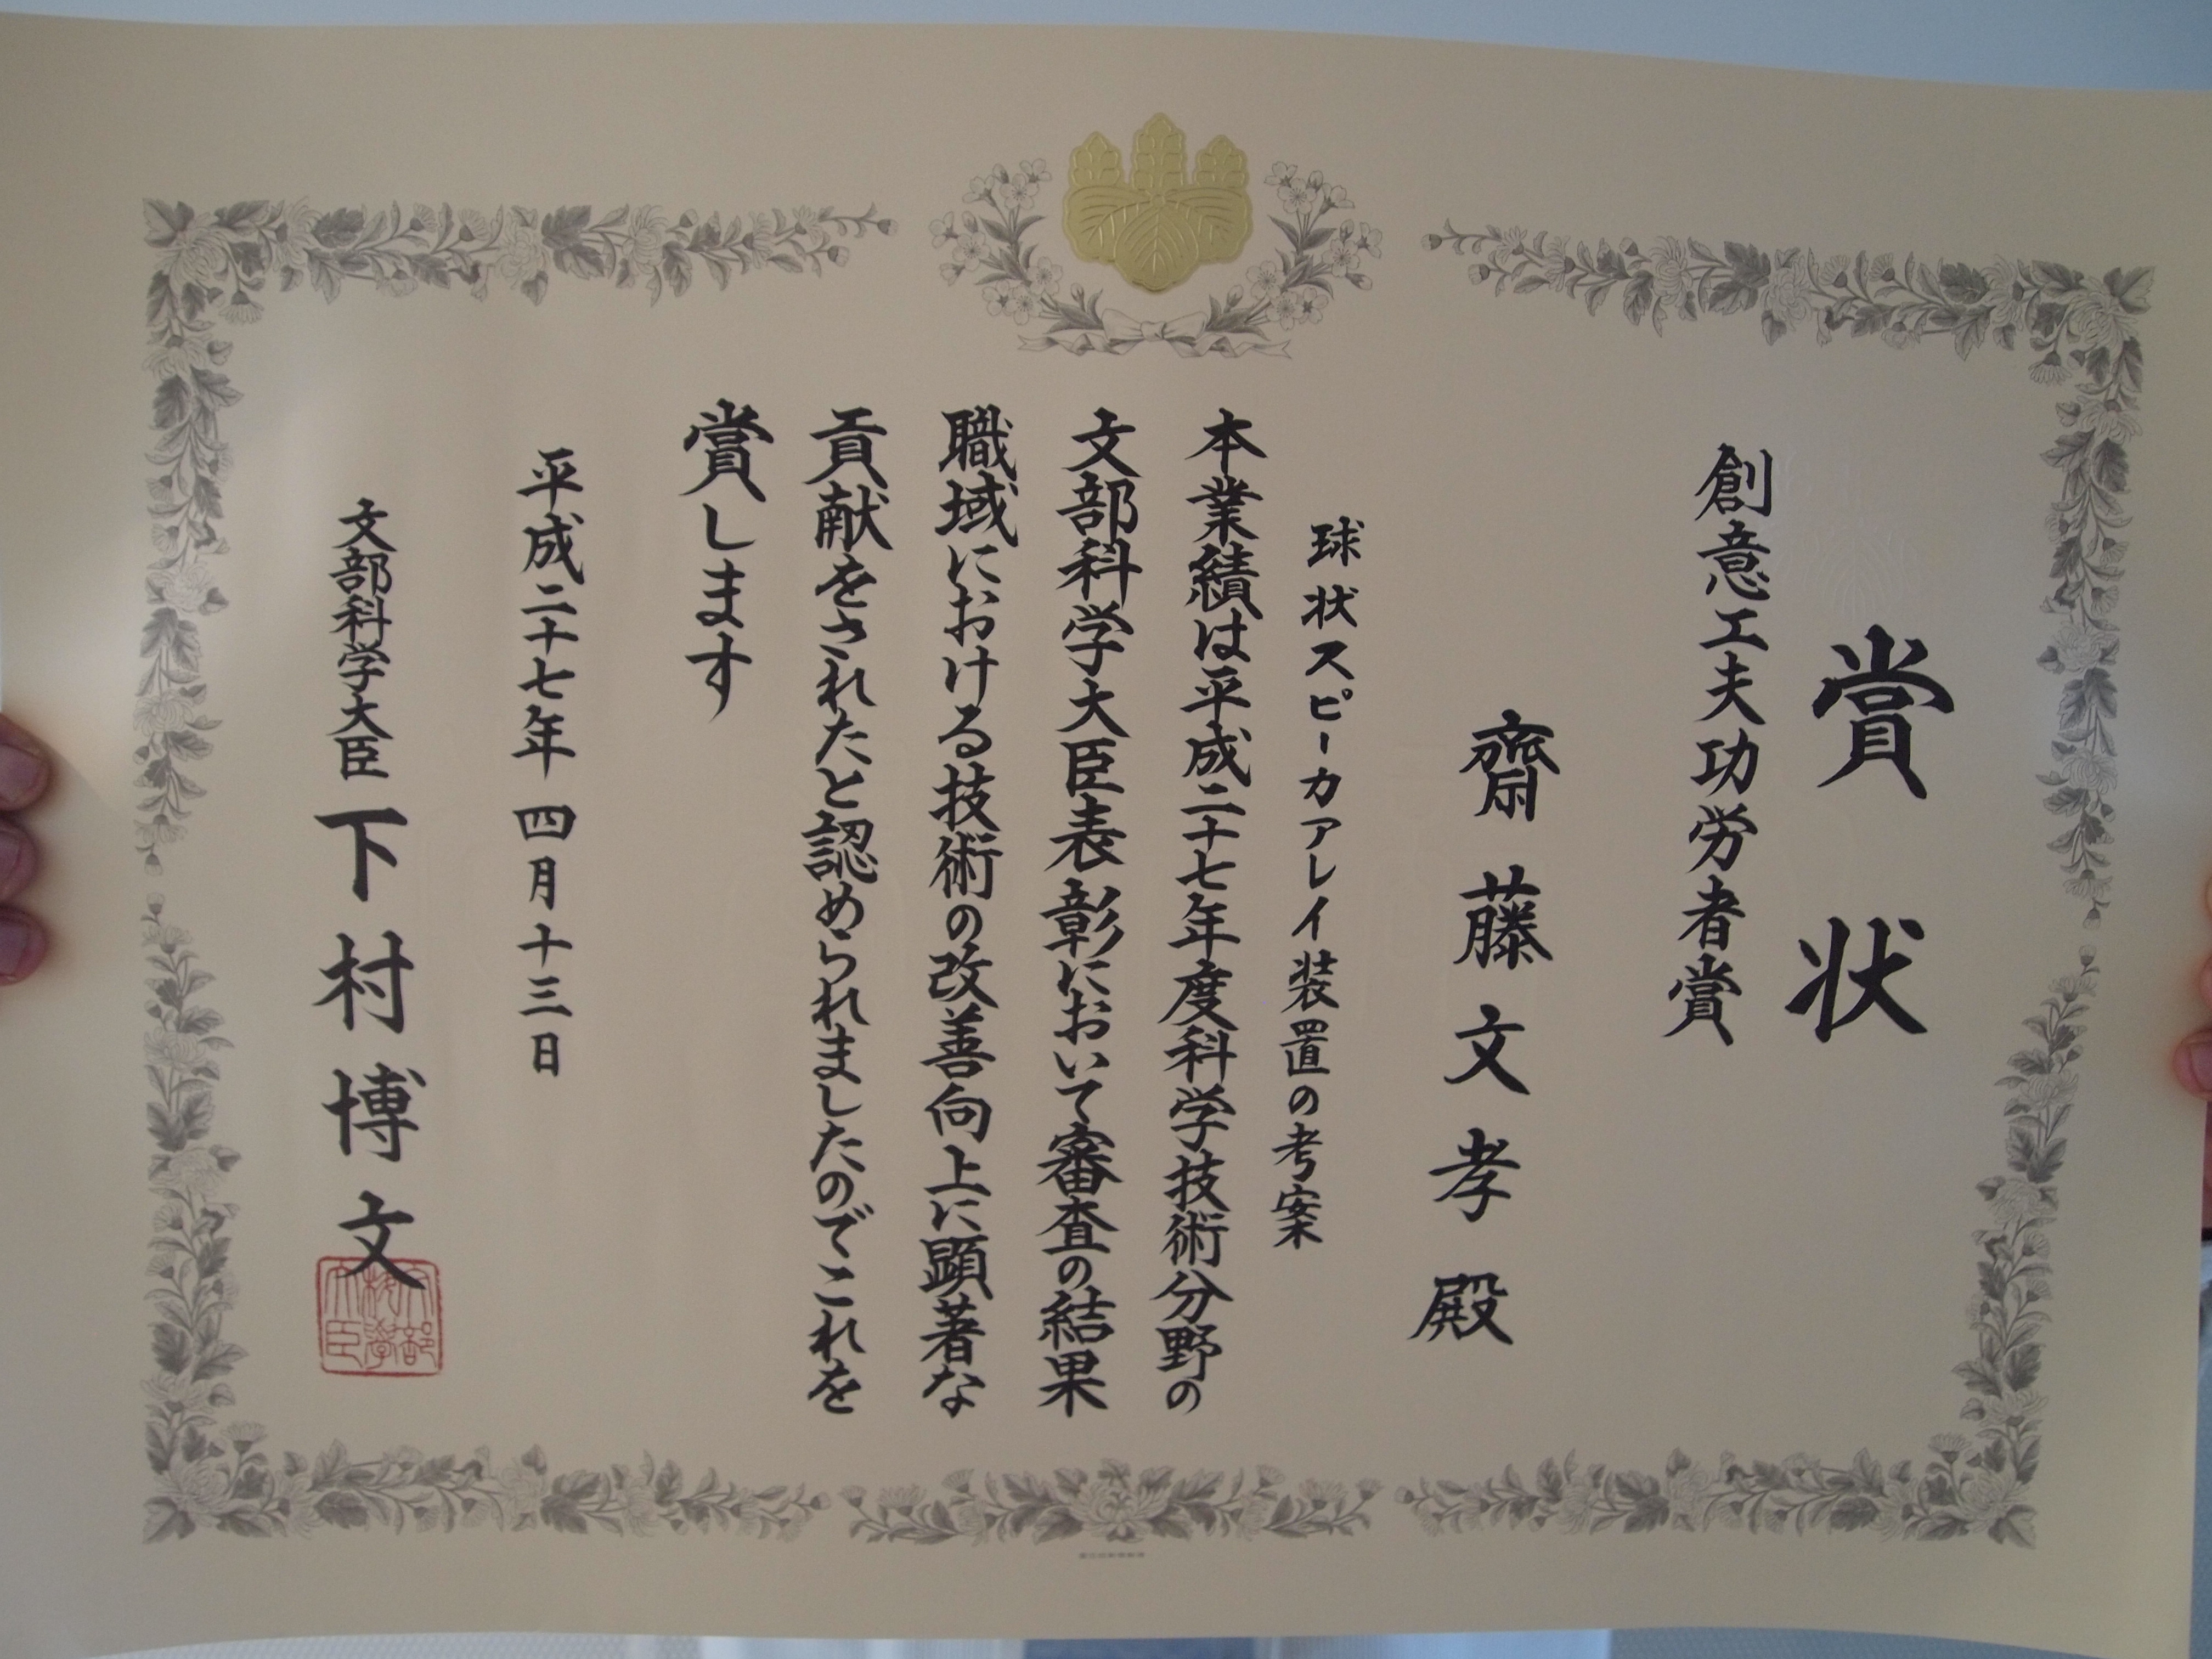 賞状
創意工夫功労者賞
齋藤文孝殿
球状スピーカアレイ装置の考案
本業績は平成二十七年度科学技術分野の
文部科学大臣表彰において審査の結果
職域における技術の改善向上に顕著な
貢献をされたと認められましたのでこれを
賞します
平成二十七年四月十三日
文部科学大臣下村博文
文部科学大臣